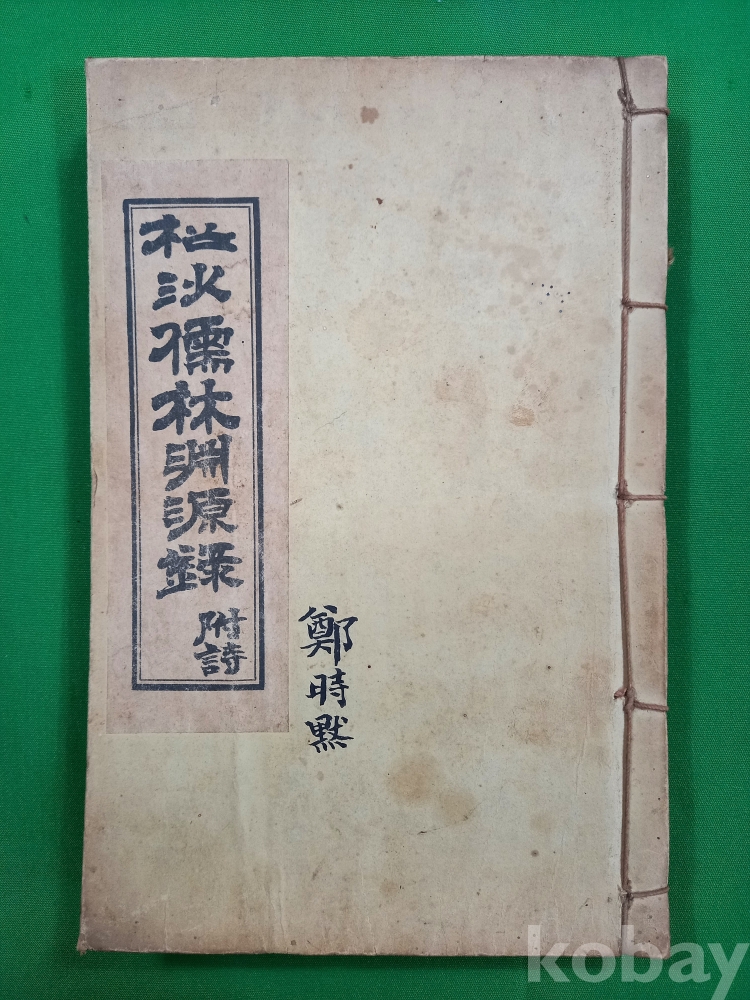 松沙儒林淵源錄
附詩
鄭時黙
kobay